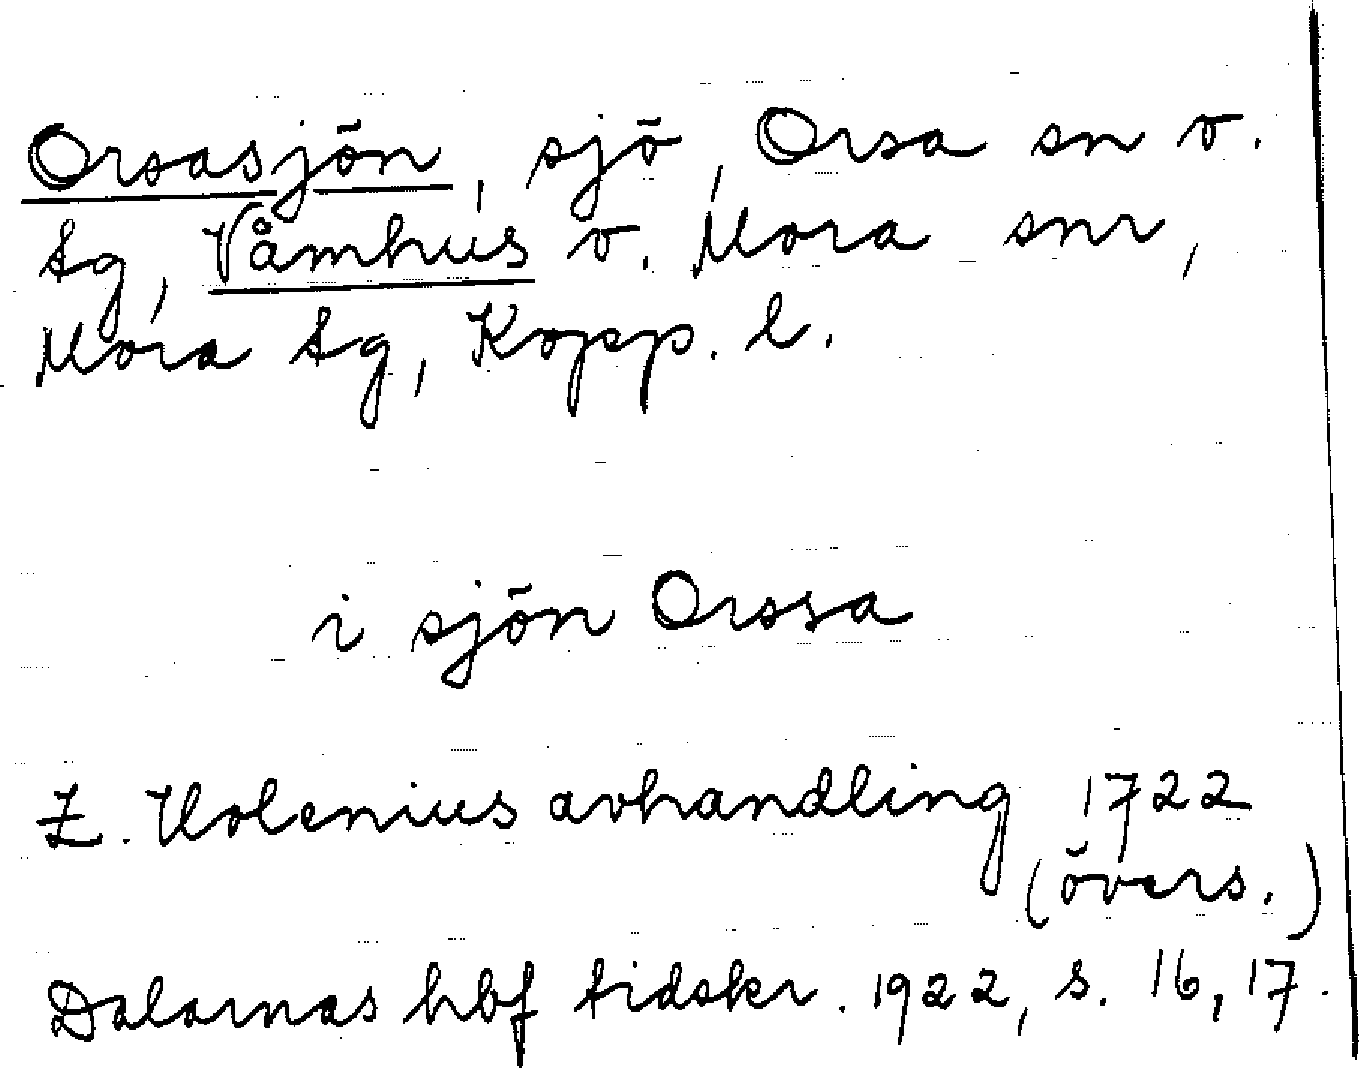 Orsasjön, sjö, Orsa sn o.
tg, Våmhus o. Mora snr,
Mora tg, Kopp. l.
i sjön Orssa
Z. Holenius avhandling 1722
(övers.)
Dalarnas hbf tidskr. 1922, s. 16, 17.